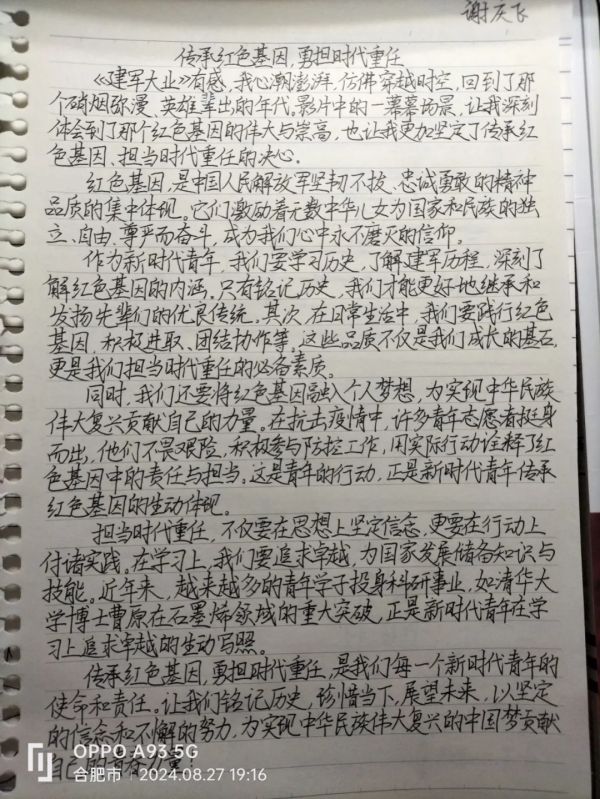 谢庆飞
传承红色基因,勇担时代重任
《建军大业》有感,我心潮澎湃,仿佛穿越时空,回到了那
个硝烟弥漫、英雄辈出的年代。影片中的一幕幕场景,让我深刻
体会到了那个红色基因的伟大与崇高,也让我更加坚定了传承红
色基因、担当时代重任的决心。
红色基因,是中国人民解放军坚韧不拔、忠诚勇敢的精神
品质的集中体现。它们激励着无数中华儿女为国家和民族的独
立、自由、尊严而奋斗,成为我们心中永不磨灭的信仰。
作为新时代青年,我们要学习历史,了解建军历程,深刻了
解红色基因的内涵。只有铭记历史,我们才能更好地继承和
发扬先辈们的优良传统。其次,在日常生活中,我们要践行红色
基因,积极进取、团结协作等,这些品质不仅是我们成长的基石,
更是我们担当时代重任的必备素质。
同时,我们还要将红色基因融入个人梦想,为实现中华民族
伟大复兴贡献自己的力量。在抗击疫情中,许多青年志愿者挺身
而出,他们不畏艰险,积极参与防控工作,用实际行动诠释了红
色基因中的责任与担当。这是青年的行动,正是新时代青年传承
红色基因的生动体现。
担当时代重任,不仅要在思想上坚定信念,更要在行动上
付诸实践。在学习上,我们要追求卓越,为国家发展储备知识与
技能。近年来,越来越多的青年学子投身科研事业,如清华大
学博士曹原在石墨烯领域的重大突破,正是新时代青年在学
习上追求卓越的生动写照。
传承红色基因,勇担时代重任,是我们每一个新时代青年的
使命和责任。让我们铭记历史,珍惜当下,展望未来,以坚定
的信念和不懈的努力,为实现中华民族伟大复兴的中国梦贡献
自己的青春力量!
OPPO A93 5G
合肥市 2024.08.27 19:16